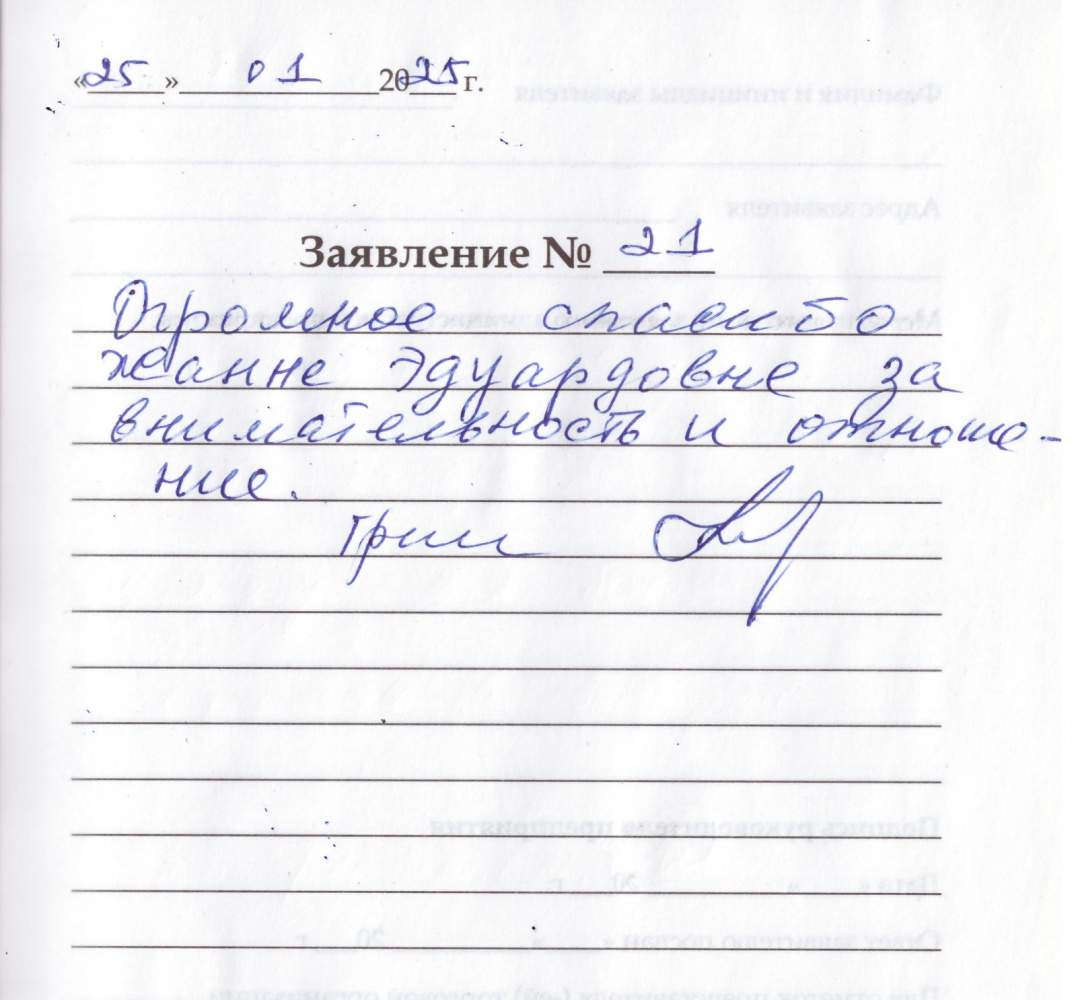 «25» 01 2025 г.
Заявление № 21
Огромное спасибо
Жанне Эдуардовне за
внимательность и отноше-
ние.